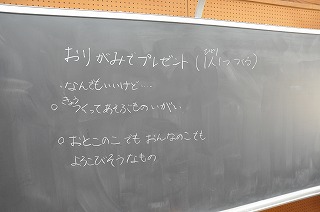 おりがみでプレゼント(1人1つつくる)
・なんでもいいけど……
○きょうつくってあそぶものいがい
○おとこのこでもおんなのこでも
よろこびそうなもの